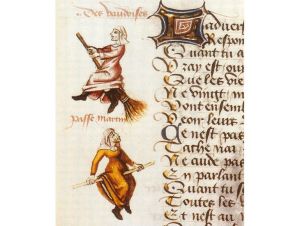 Des vaudoises
passe martin
aduert
Respon
Quant tu a
Vray est ou
Que les vie
Ne vingt
Vont ensem
Veoir leurs
Ce nest pas
Ne pas
En parlant
Quant tu
Toutes les
Et nest au